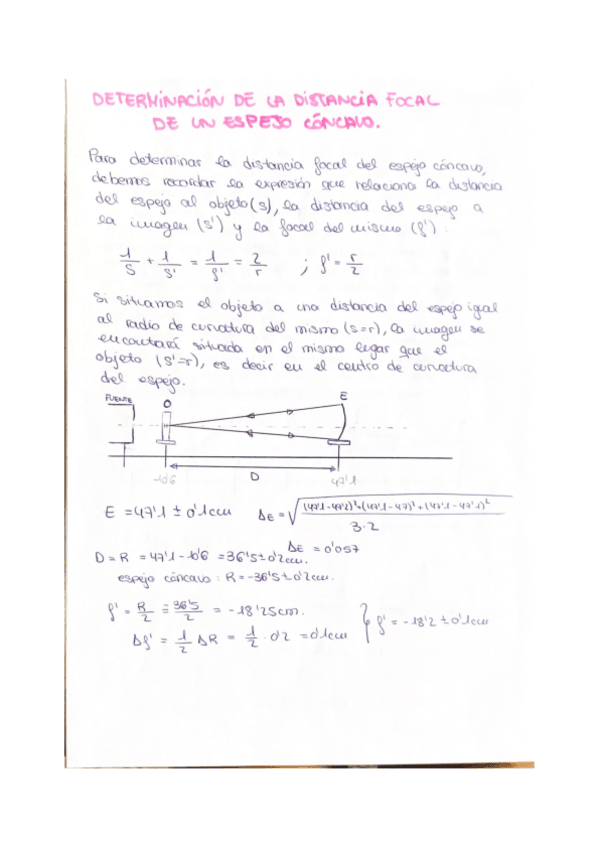 DETERMINACIÓN DE LA DISTANCIA FOCAL
DE UN ESPEJO CÓNCAVO.
Para determinar la distancia focal del espejo cóncavo,
debemos recordar la expresión que relaciona la distancia
del espejo al objeto (s), la distancia del espejo a
la imagen (s') y la focal del mismo (f').
1/s + 1/s' = 1/f' = 2/r ; f' = r/2
Si situamos el objeto a una distancia del espejo igual
al radio de curvatura del mismo (s=r), la imagen se
encontrará situada en el mismo lugar que el
objeto (s'=r), es decir en el centro de curvatura
del espejo.
FUENTE O E
10'6 D 47'1
E = 47'1 ± 0'1cm ΔE = √((47'1-47'2)²+(47'1-47)²+(47'1-47'1)²/3·2)
ΔE = 0'057
D = R = 47'1 - 10'6 = 36'5 ± 0'2cm.
espejo cóncavo: R = -36'5 ± 0'2cm.
f' = R/2 = -36'5/2 = -18'25cm.
Δf' = 1/2 ΔR = 1/2 · 0'2 = 0'1cm } f' = -18'2 ± 0'1cm